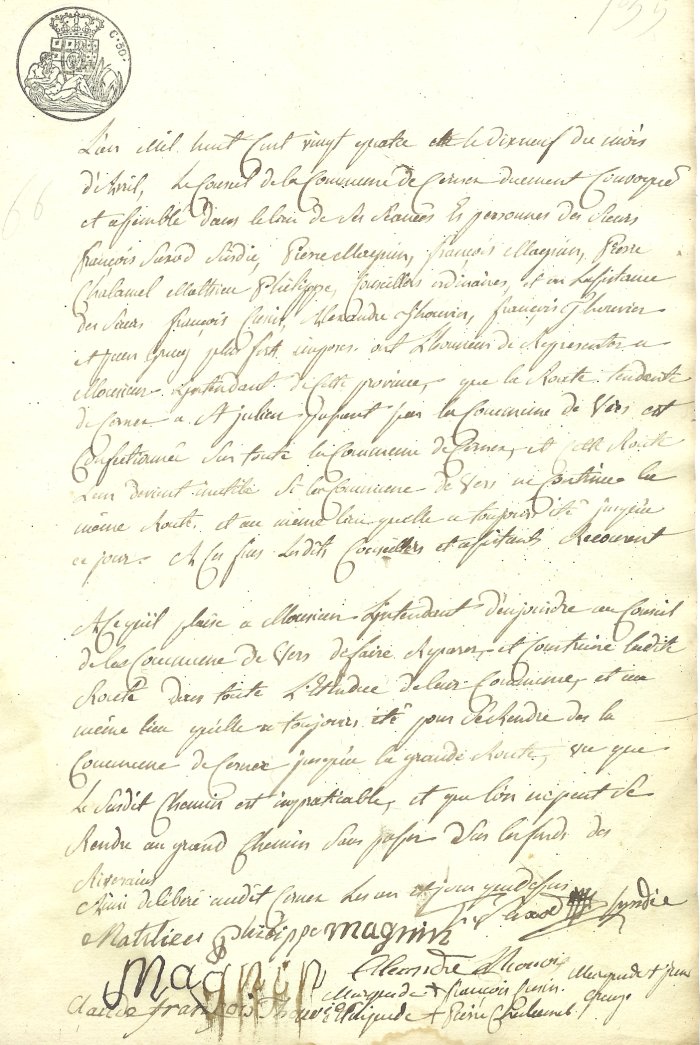 C. 50.
L'an mil huit Cent vingt quatre et le dixneuf du mois
d'Avril, Le Conseil de la Commune de Cernex duement Convoqué
et assemblé dans le lieu de ses séances Es personnes des Sieurs
françois Sindic, Pierre Magnin, françois Magnin, Pierre
Chalamel Mathieu Philippe, Conseillers ordinaires, et en Lassistance
des Sieurs françois Alexandre Thouvier, françois Thouvier
plus forts imposés ont L'honneur de Representer a
Monsieur Lintendant de Cette province, que la Route tendante
de Cernex a St julien passant par la Commune de Vers est
Confectionnée Sur toute la Commune de Cernex, et cette Route
Leur devient inutile Si la Commune de Vers ne Continue la
même Route, et au même lieu quelle a toujours été jusqu'a
ce jour. A Ces fins Lesdits Conseillers et assistants Recourent
A Ce qu'il plaise a Monsieur Lintendant d'enjoindre au Conseil
de la Commune de Vers de faire Reparer, et Construire ladite
Route dans toute L'Etendue de leur Commune, et au
même lieu qu'elle a toujours été pour Se Rendre des la
Commune de Cernex jusqu'a la grande Route, vu que
Le Susdit Chemin est impraticable, et que l'on ne peut Se
Rendre au grand Chemin Sans passer Sur les fonds des
Riverains
Ainsi deliberé audit Cernex Les an et jour que dessus
Mathieu Philippe magnin Syndic
Magnin Alexandre Thouvier Marque de + jean
Claude françois Marque de + françois
Marque de + Pierre Chalamel